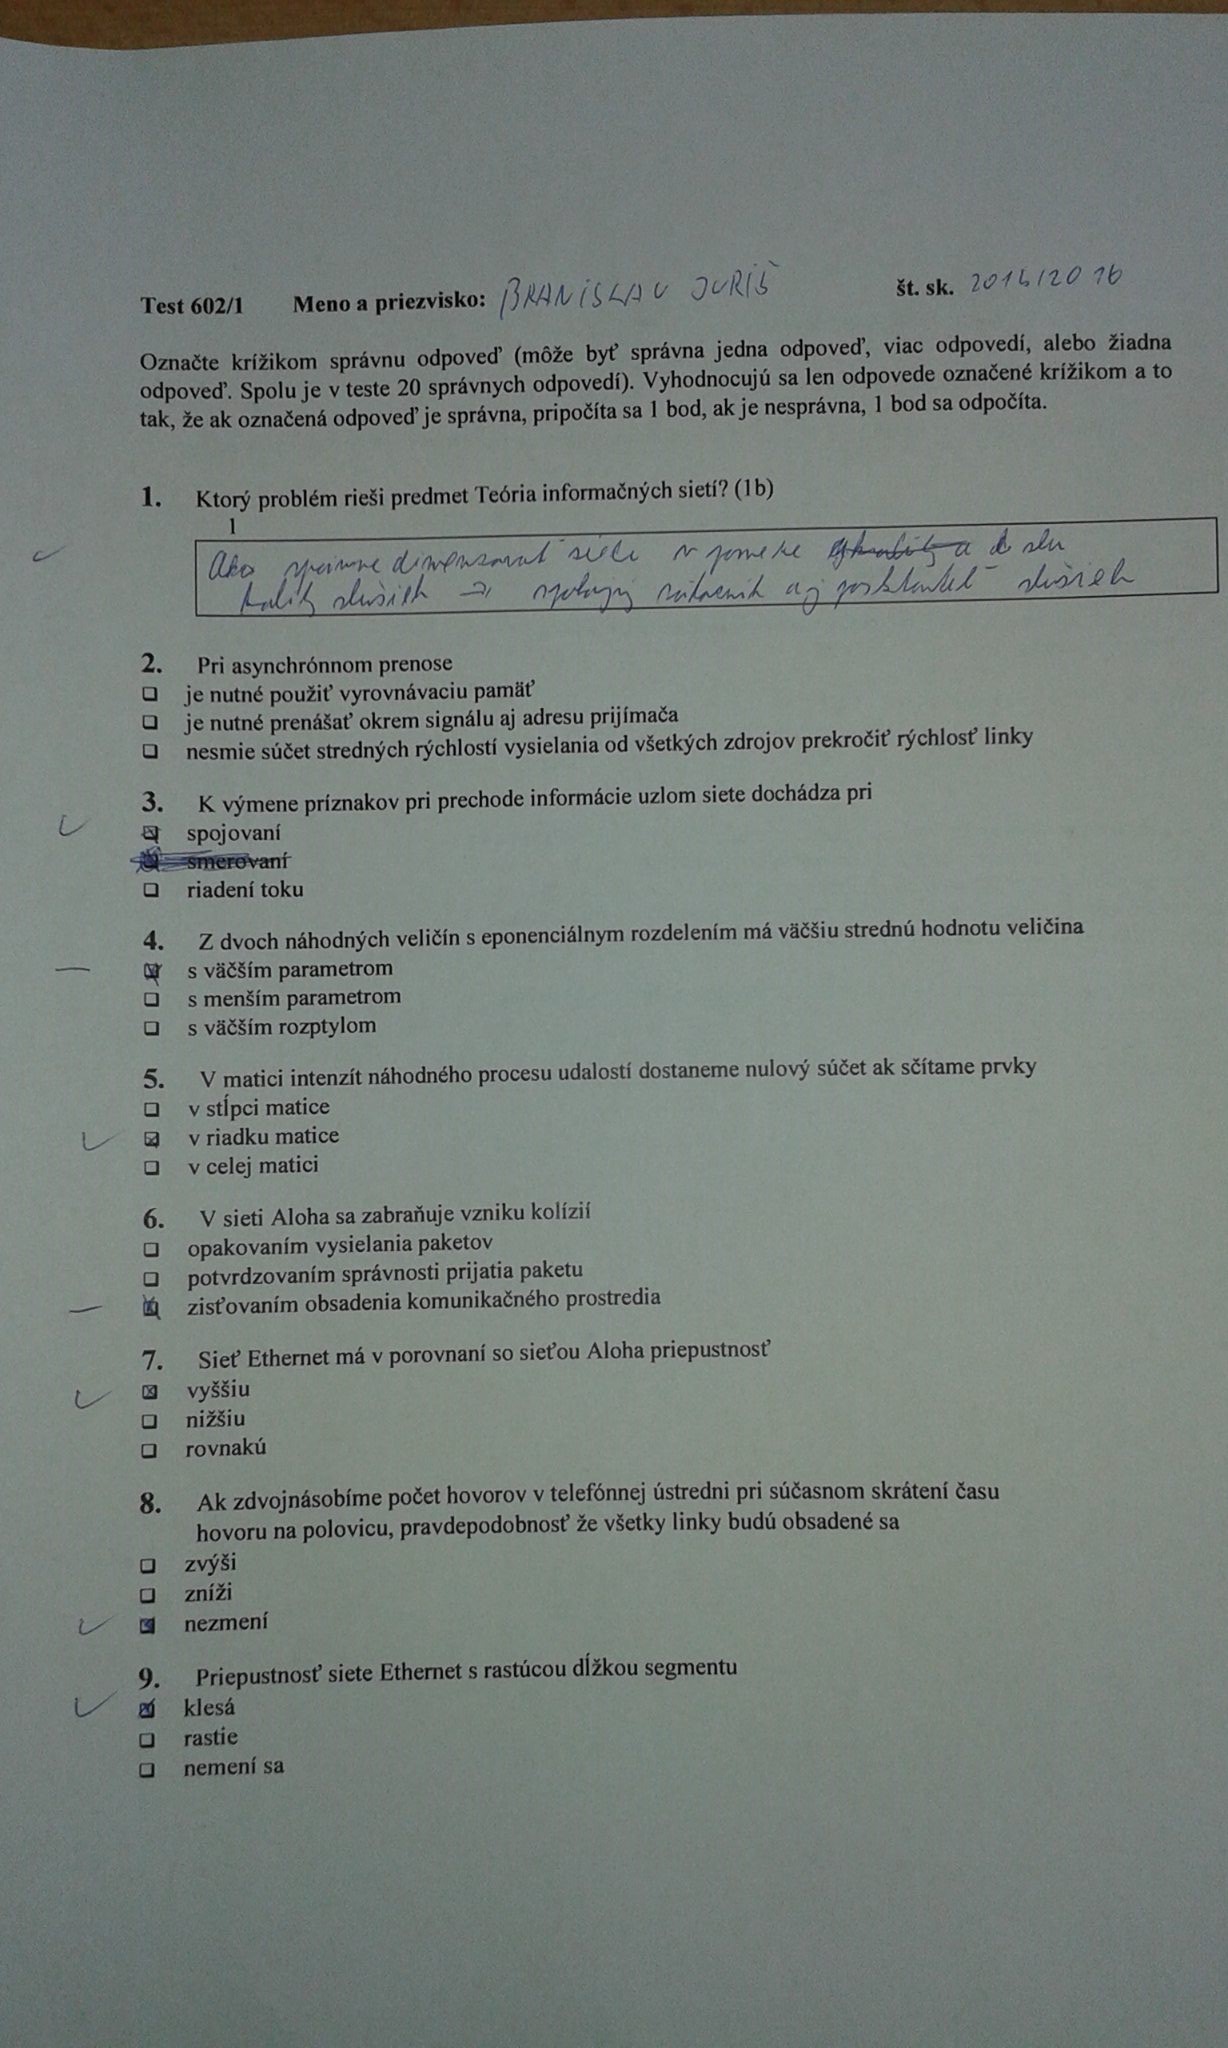 Test 602/1 Meno a priezvisko: BRANISLAV JURIŠ št. sk. 2015/2016
Označte krížikom správnu odpoveď (môže byť správna jedna odpoveď, viac odpovedí, alebo žiadna
odpoveď. Spolu je v teste 20 správnych odpovedí). Vyhodnocujú sa len odpovede označené krížikom a to
tak, že ak označená odpoveď je správna, pripočíta sa 1 bod, ak je nesprávna, 1 bod sa odpočíta.
1. Ktorý problém rieši predmet Teória informačných sietí? (1b)
1
Ako správne dimenzovať siete v pomere a
kality služieb → spokojný zákazník aj poskytovateľ služieb
2. Pri asynchrónnom prenose
je nutné použiť vyrovnávaciu pamäť
je nutné prenášať okrem signálu aj adresu prijímača
nesmie súčet stredných rýchlostí vysielania od všetkých zdrojov prekročiť rýchlosť linky
3. K výmene príznakov pri prechode informácie uzlom siete dochádza pri
spojovaní
smerovaní
riadení toku
4. Z dvoch náhodných veličín s eponenciálnym rozdelením má väčšiu strednú hodnotu veličina
s väčším parametrom
s menším parametrom
s väčším rozptylom
5. V matici intenzít náhodného procesu udalostí dostaneme nulový súčet ak sčítame prvky
v stĺpci matice
v riadku matice
v celej matici
6. V sieti Aloha sa zabraňuje vzniku kolízií
opakovaním vysielania paketov
potvrdzovaním správnosti prijatia paketu
zisťovaním obsadenia komunikačného prostredia
7. Sieť Ethernet má v porovnaní so sieťou Aloha priepustnosť
vyššiu
nižšiu
rovnakú
8. Ak zdvojnásobíme počet hovorov v telefónnej ústredni pri súčasnom skrátení času
hovoru na polovicu, pravdepodobnosť že všetky linky budú obsadené sa
zvýši
zníži
nezmení
9. Priepustnosť siete Ethernet s rastúcou dĺžkou segmentu
klesá
rastie
nemení sa